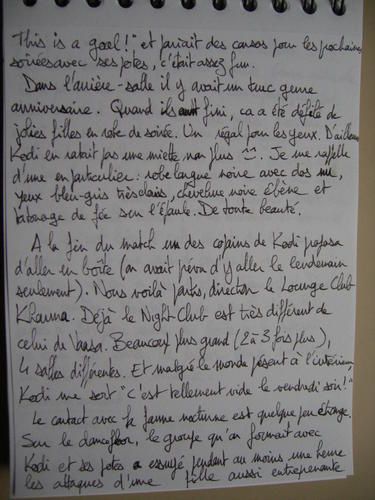 This is a goal!" et pariait des canons pour les prochaines
soirées avec ses potes, c'était assez fun.
Dans l'arrière-salle il y avait un truc genre
anniversaire. Quand ils ont fini, ca a été défilé de
jolies filles en robe de soirée. Un régal pour les yeux. D'ailleurs
Kodi en ratait pas une miette, non plus 🙂. Je me rappelle
d'une en particulier : robe longue noire avec dos nu,
yeux bleu-gris très clairs, chevelure noire ébène et
tatouage de fée sur l'épaule. De toute beauté.
A la fin du match un des copains de Kodi proposa
d'aller en boîte (on avait prévu d'y aller le lendemain
seulement). Nous voilà partis, direction le Lounge Club
Khanna. Déjà le Night Club est très différent de
celui de Vaasa. Beaucoup plus grand (2 à 3 fois plus),
4 salles différentes. Et malgré le monde présent à l'intérieur
Kodi me sort "c'est tellement vide le vendredi soir!"
Le contact avec la faune nocturne est quelque peu étrange.
Sur le dancefloor, le groupe qu'on formait avec
Kodi et ses potes a essuyé pendant au moins une heure
les attaques d'une fille aussi entreprenante